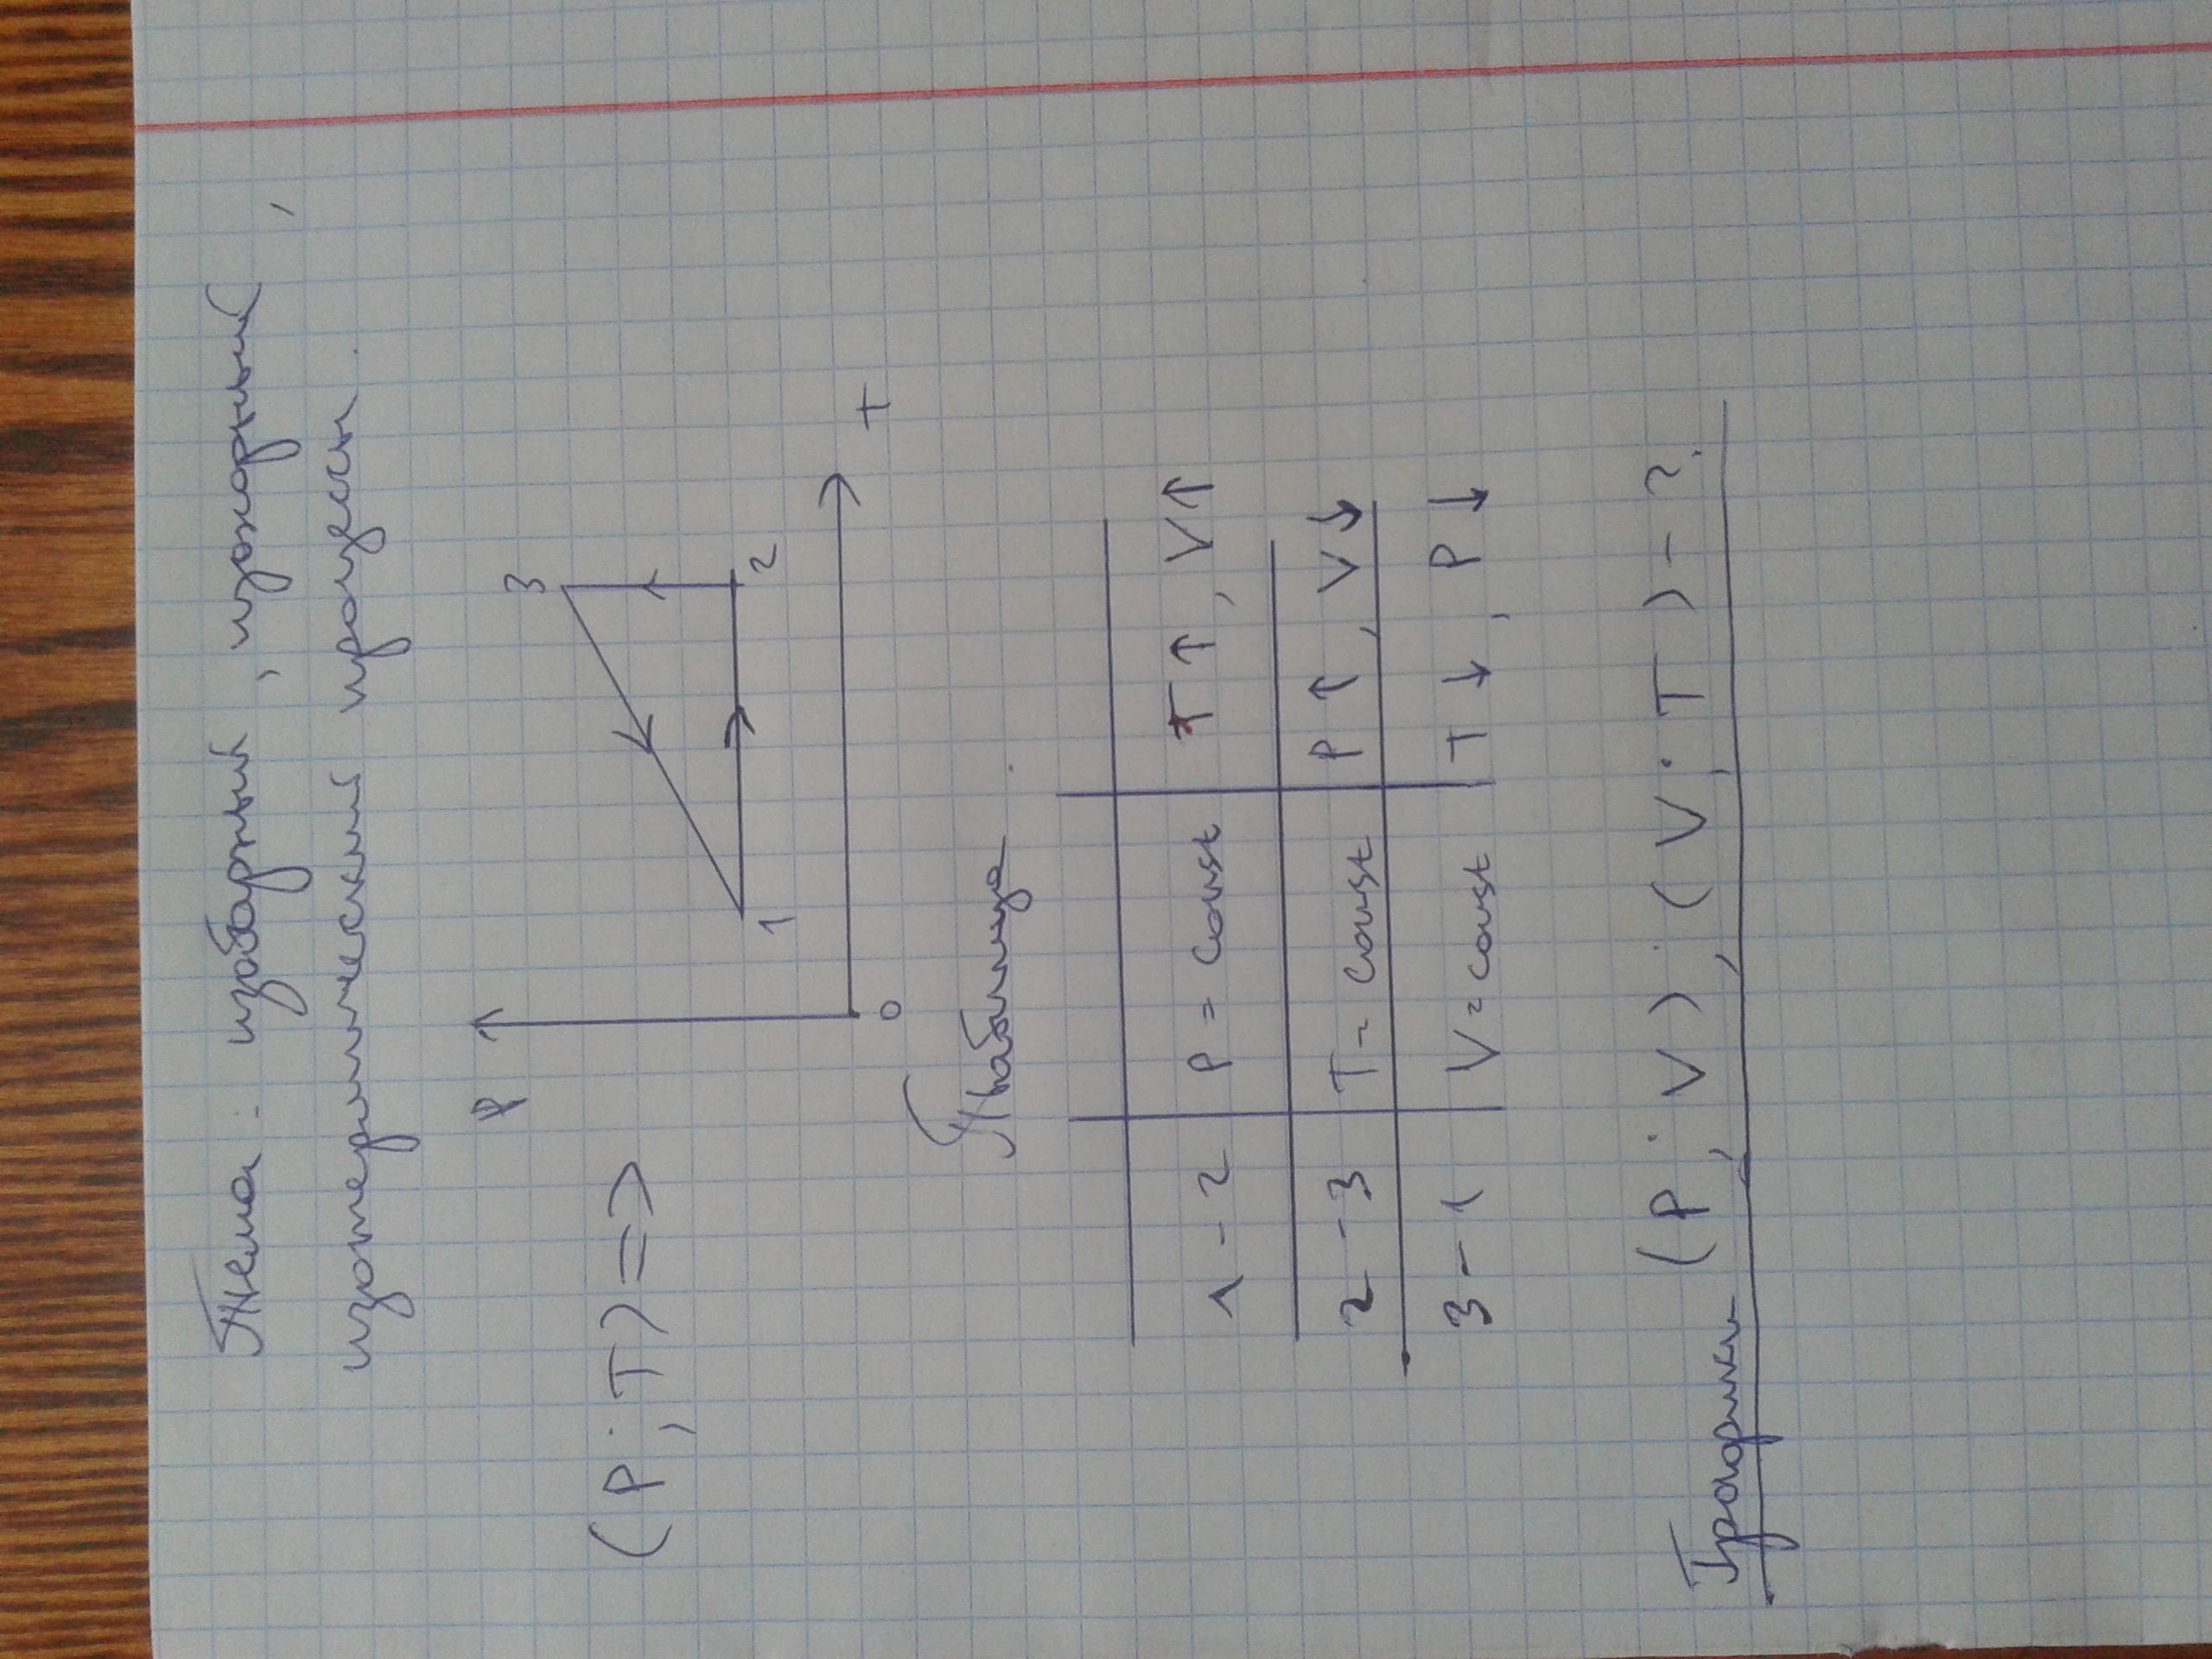 Тема: изобарный, изохорный,
изотермический процессы.
(P; T) =>
P
3
1
2
0
T
Таблица
1 - 2 P = const T↑, V↑
2 - 3 T - const P↑, V↓
3 - 1 V = const T↓, P↓
Графики (P; V); (V; T) - ?